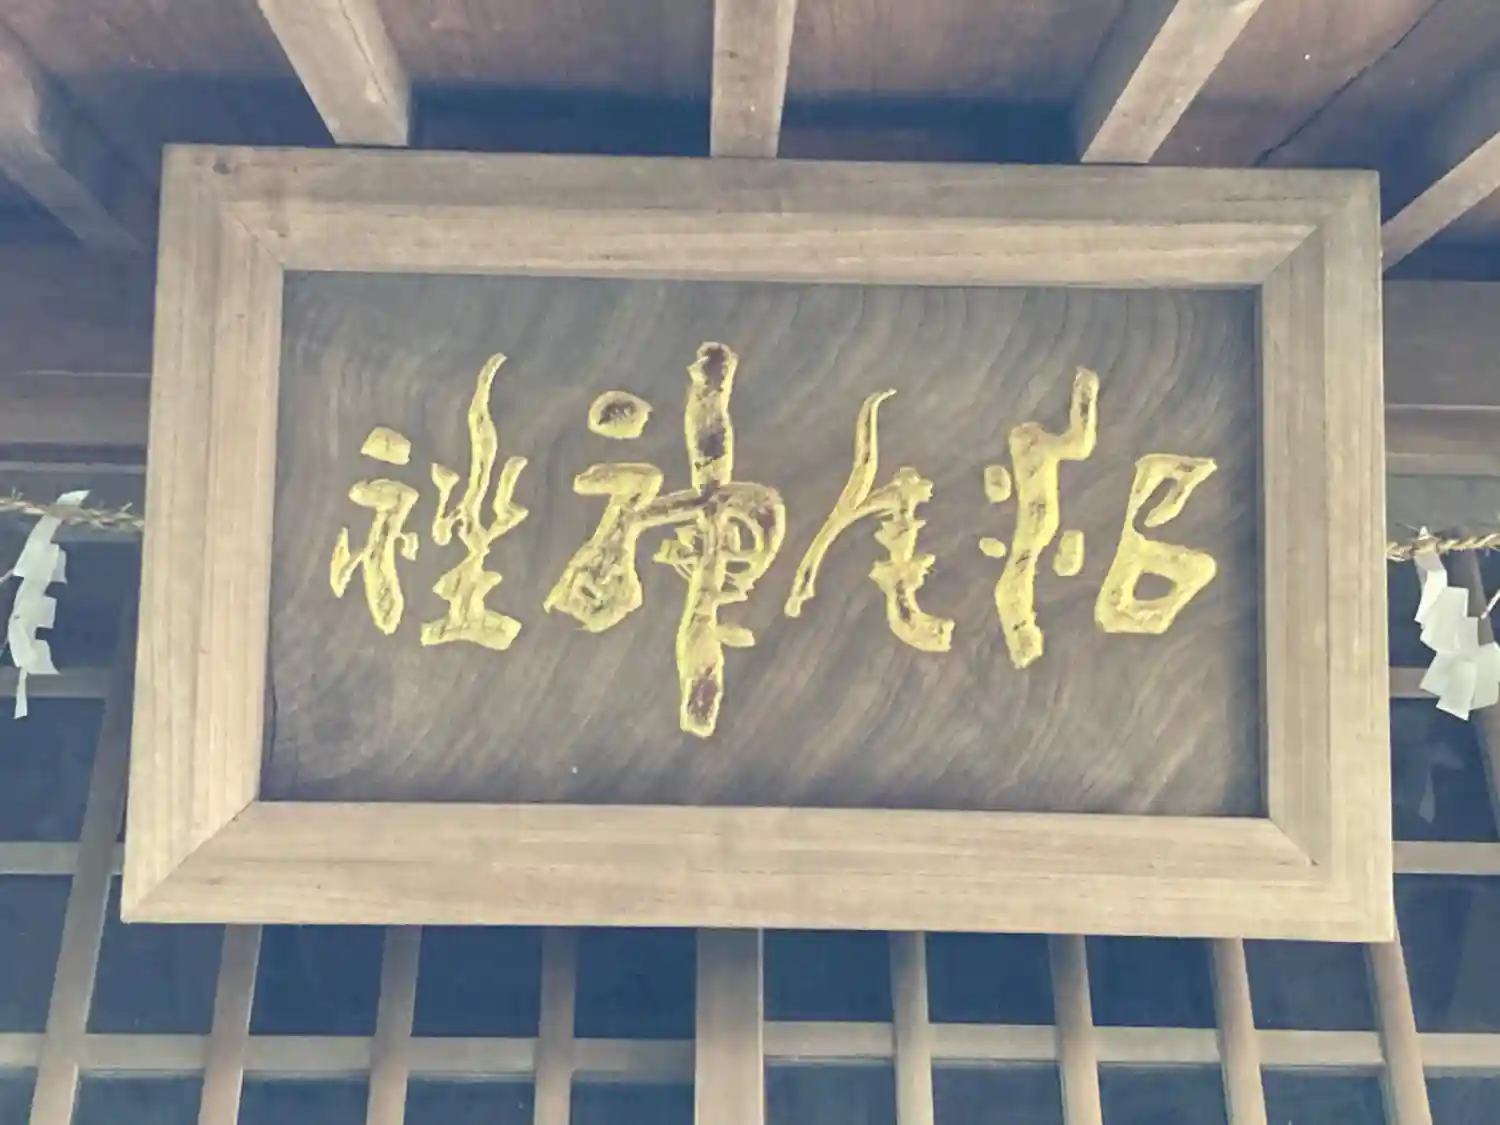 沼尾神社